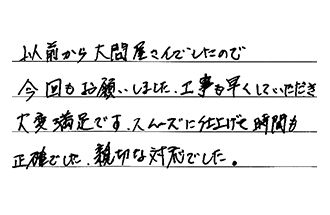 以前から大問屋さんでしたので
今回もお願いしました、工事も早くしていただき
大変満足です、スムーズに仕上げも時間も
正確でした、親切な対応でした。